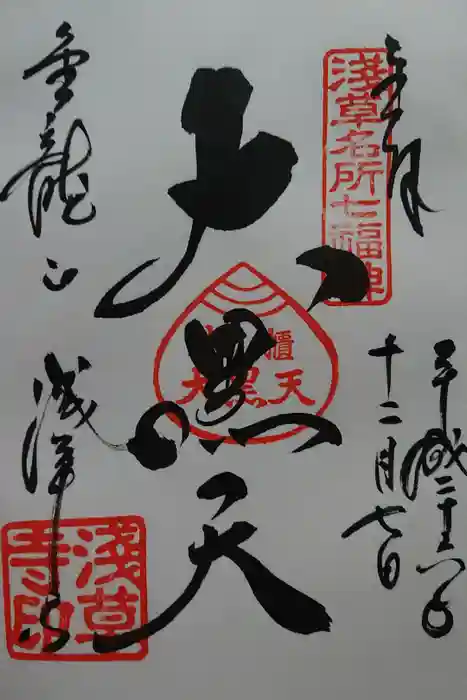 奉拝
淺草名所七福神
平成二十六年
十二月七日
大黒天
米櫃
大黒天
金龍山
浅草寺
淺草寺印